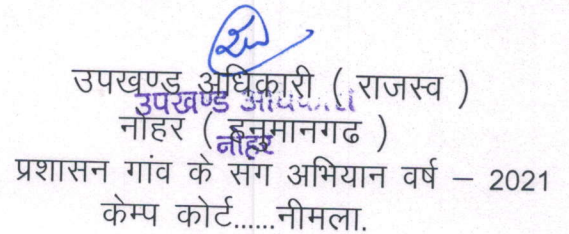 उपखण्ड अधिकारी ( राजस्व )
उपखण्ड अधिकारी
नोहर ( हनुमानगढ )
नोहर
प्रशासन गांव के संग अभियान वर्ष – 2021
केम्प कोर्ट......नीमला.